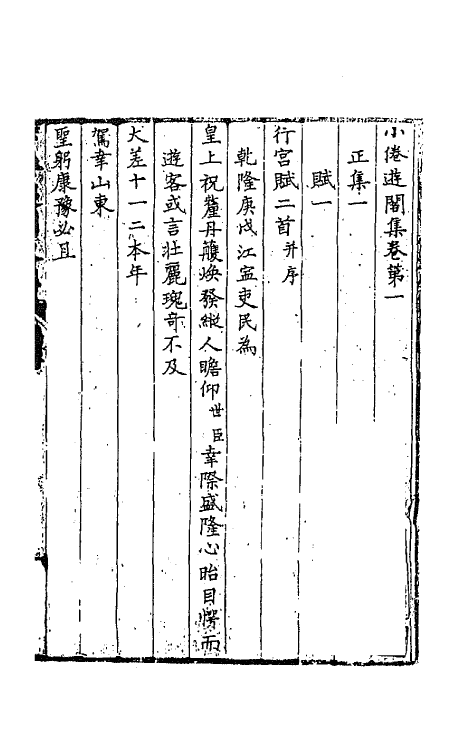 小倦遊閣集卷第一
正集一
賦一
行宮賦二首并序
乾隆庚戌江寍吏民為
皇上祝釐丹艧煥發縱人瞻仰世臣幸際盛隆心眙目愕而
遊客或言壯麗瑰奇不及
大差十一二本年
駕幸山東
聖躬康豫必且